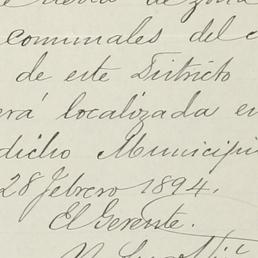 de
comunales del
de este Districto
localizada en
dicho Municipi
28 Febrero 1894.
El Gerente.